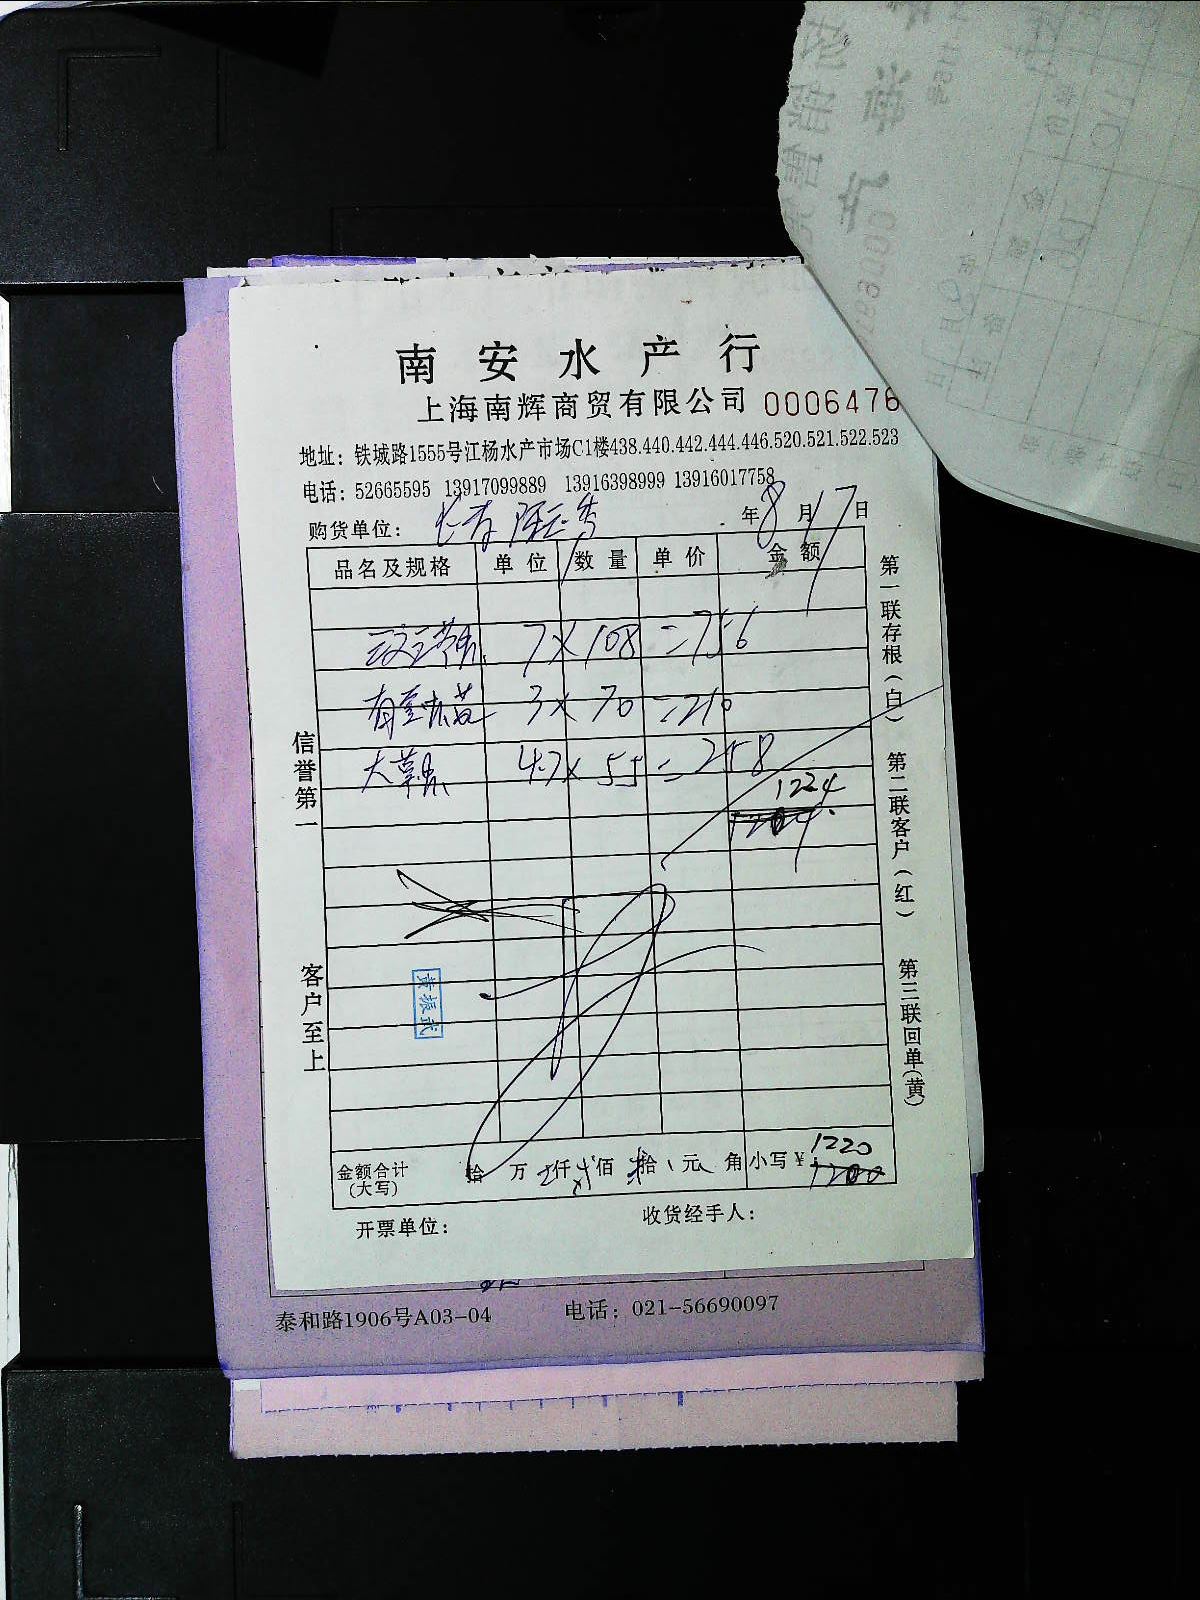 南安水产行
上海南辉商贸有限公司 0006476
地址：铁城路1555号江杨水产市场C1楼438.440.442.444.446.520.521.522.523
电话：52665595 13917099889 13916398999 13916017758
购货单位： 年8月17日
品名及规格 单位 数量 单价 金额
7×108=756
3×70=210
大 4.7×55=258
1224
1204
信誉第一
客户至上
第一联存根(白)
第二联客户(红)
第三联回单(黄)
黄振武
金额合计 拾 万 仟 佰 拾 元 角 小写¥ 1220
(大写) 1200
开票单位： 收货经手人：
泰和路1906号A03-04 电话：021-56690097